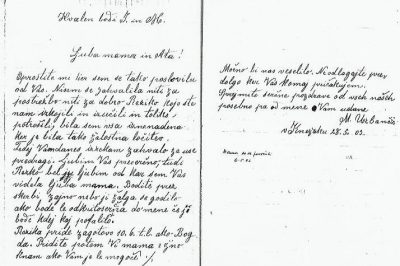 Hvalen bodi J. in M.
Ljuba mama in Ata!
Oprostite mi ker sem se tako poslovila
od Vas. Nisem se zahvalila niti za
postrežbo niti za dobro Reziko kojo ste
nam vzgojili in izučili in toliko
potrošili, bila sem vsa iznenadena
ker je bila tako žalostna ločitev.
Tedaj Vam danes izrekam zahvalo za vse
predragi. Ljubim Vas prisrčno, tudi
Rezko bolje ljubim od kar sem Vas
videla ljuba mama. Bodite brez
skrbi, zajno nebo ji žalga se godilo
ako bode le odkritosrčna do mene če ji
bode kdaj kaj pofalilo.
Rezika pride zagotovo 10.6. t.l. ako Bog
da. Pridite potem Vi mama z njo
k nam ako Vam je le mogoče!
Močno bi nas veselilo. Ne odlagajte pre
dolgo ker Vas komaj pričakujem.
Sprejmite srčne pozdrave od vseh naših
posebno pa od mene Vam udane
M. Urbančič
V Knežaku 28.5. 03.